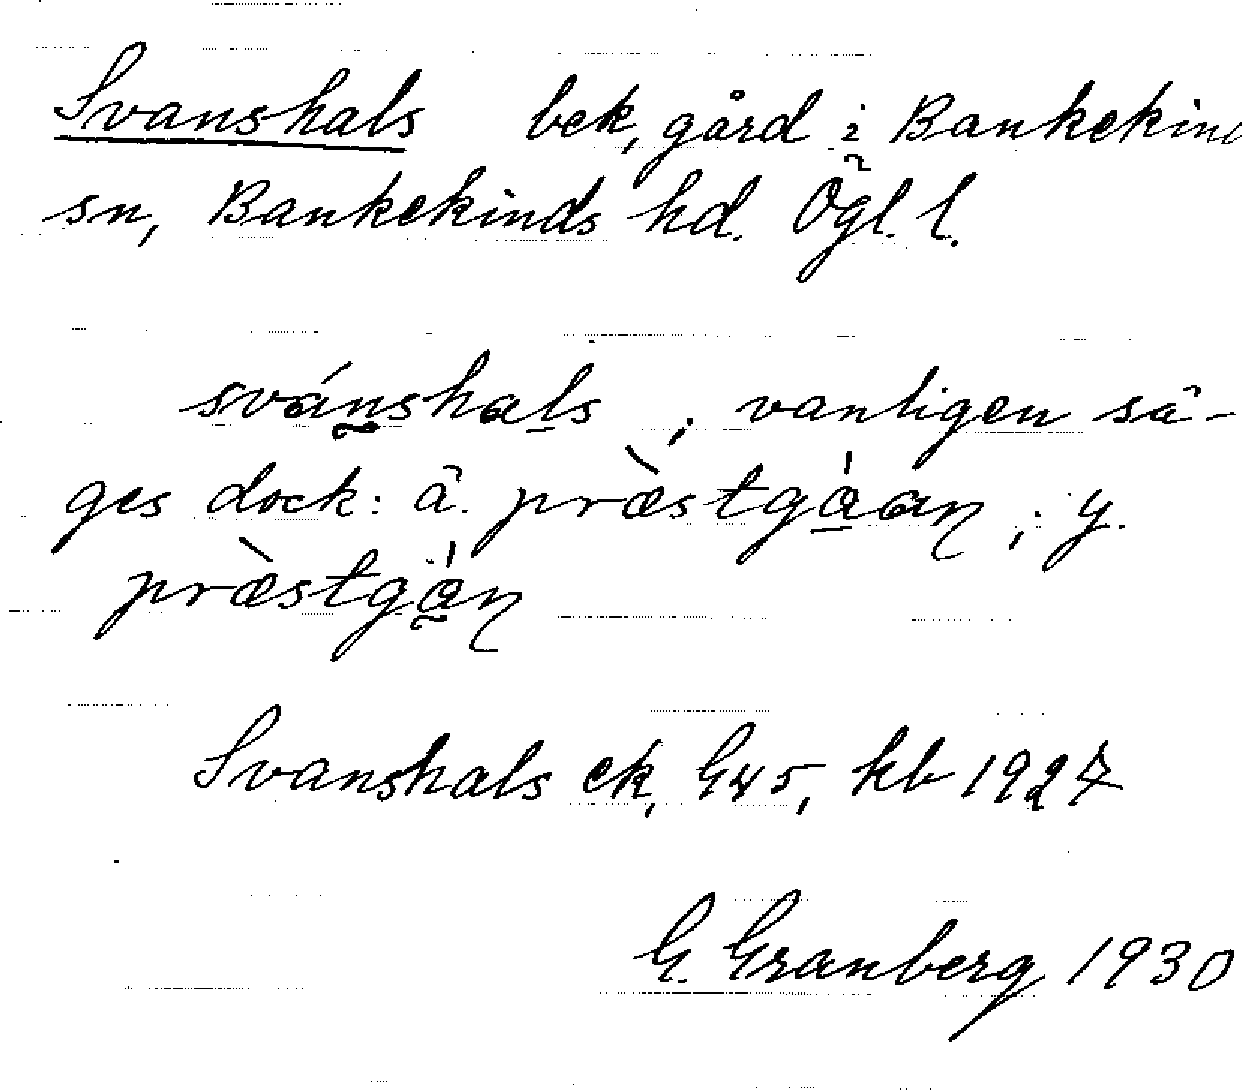 Svanshals bek, gård i Bankekind
sn, Bankekinds hd. Ögl. l.
svánshals ; vanligen sä-
ges dock: ä. præ̀stgå̀an ; y.
præ̀stgå̀n
Svanshals ek, G45, kb 1927
G. Granberg 1930